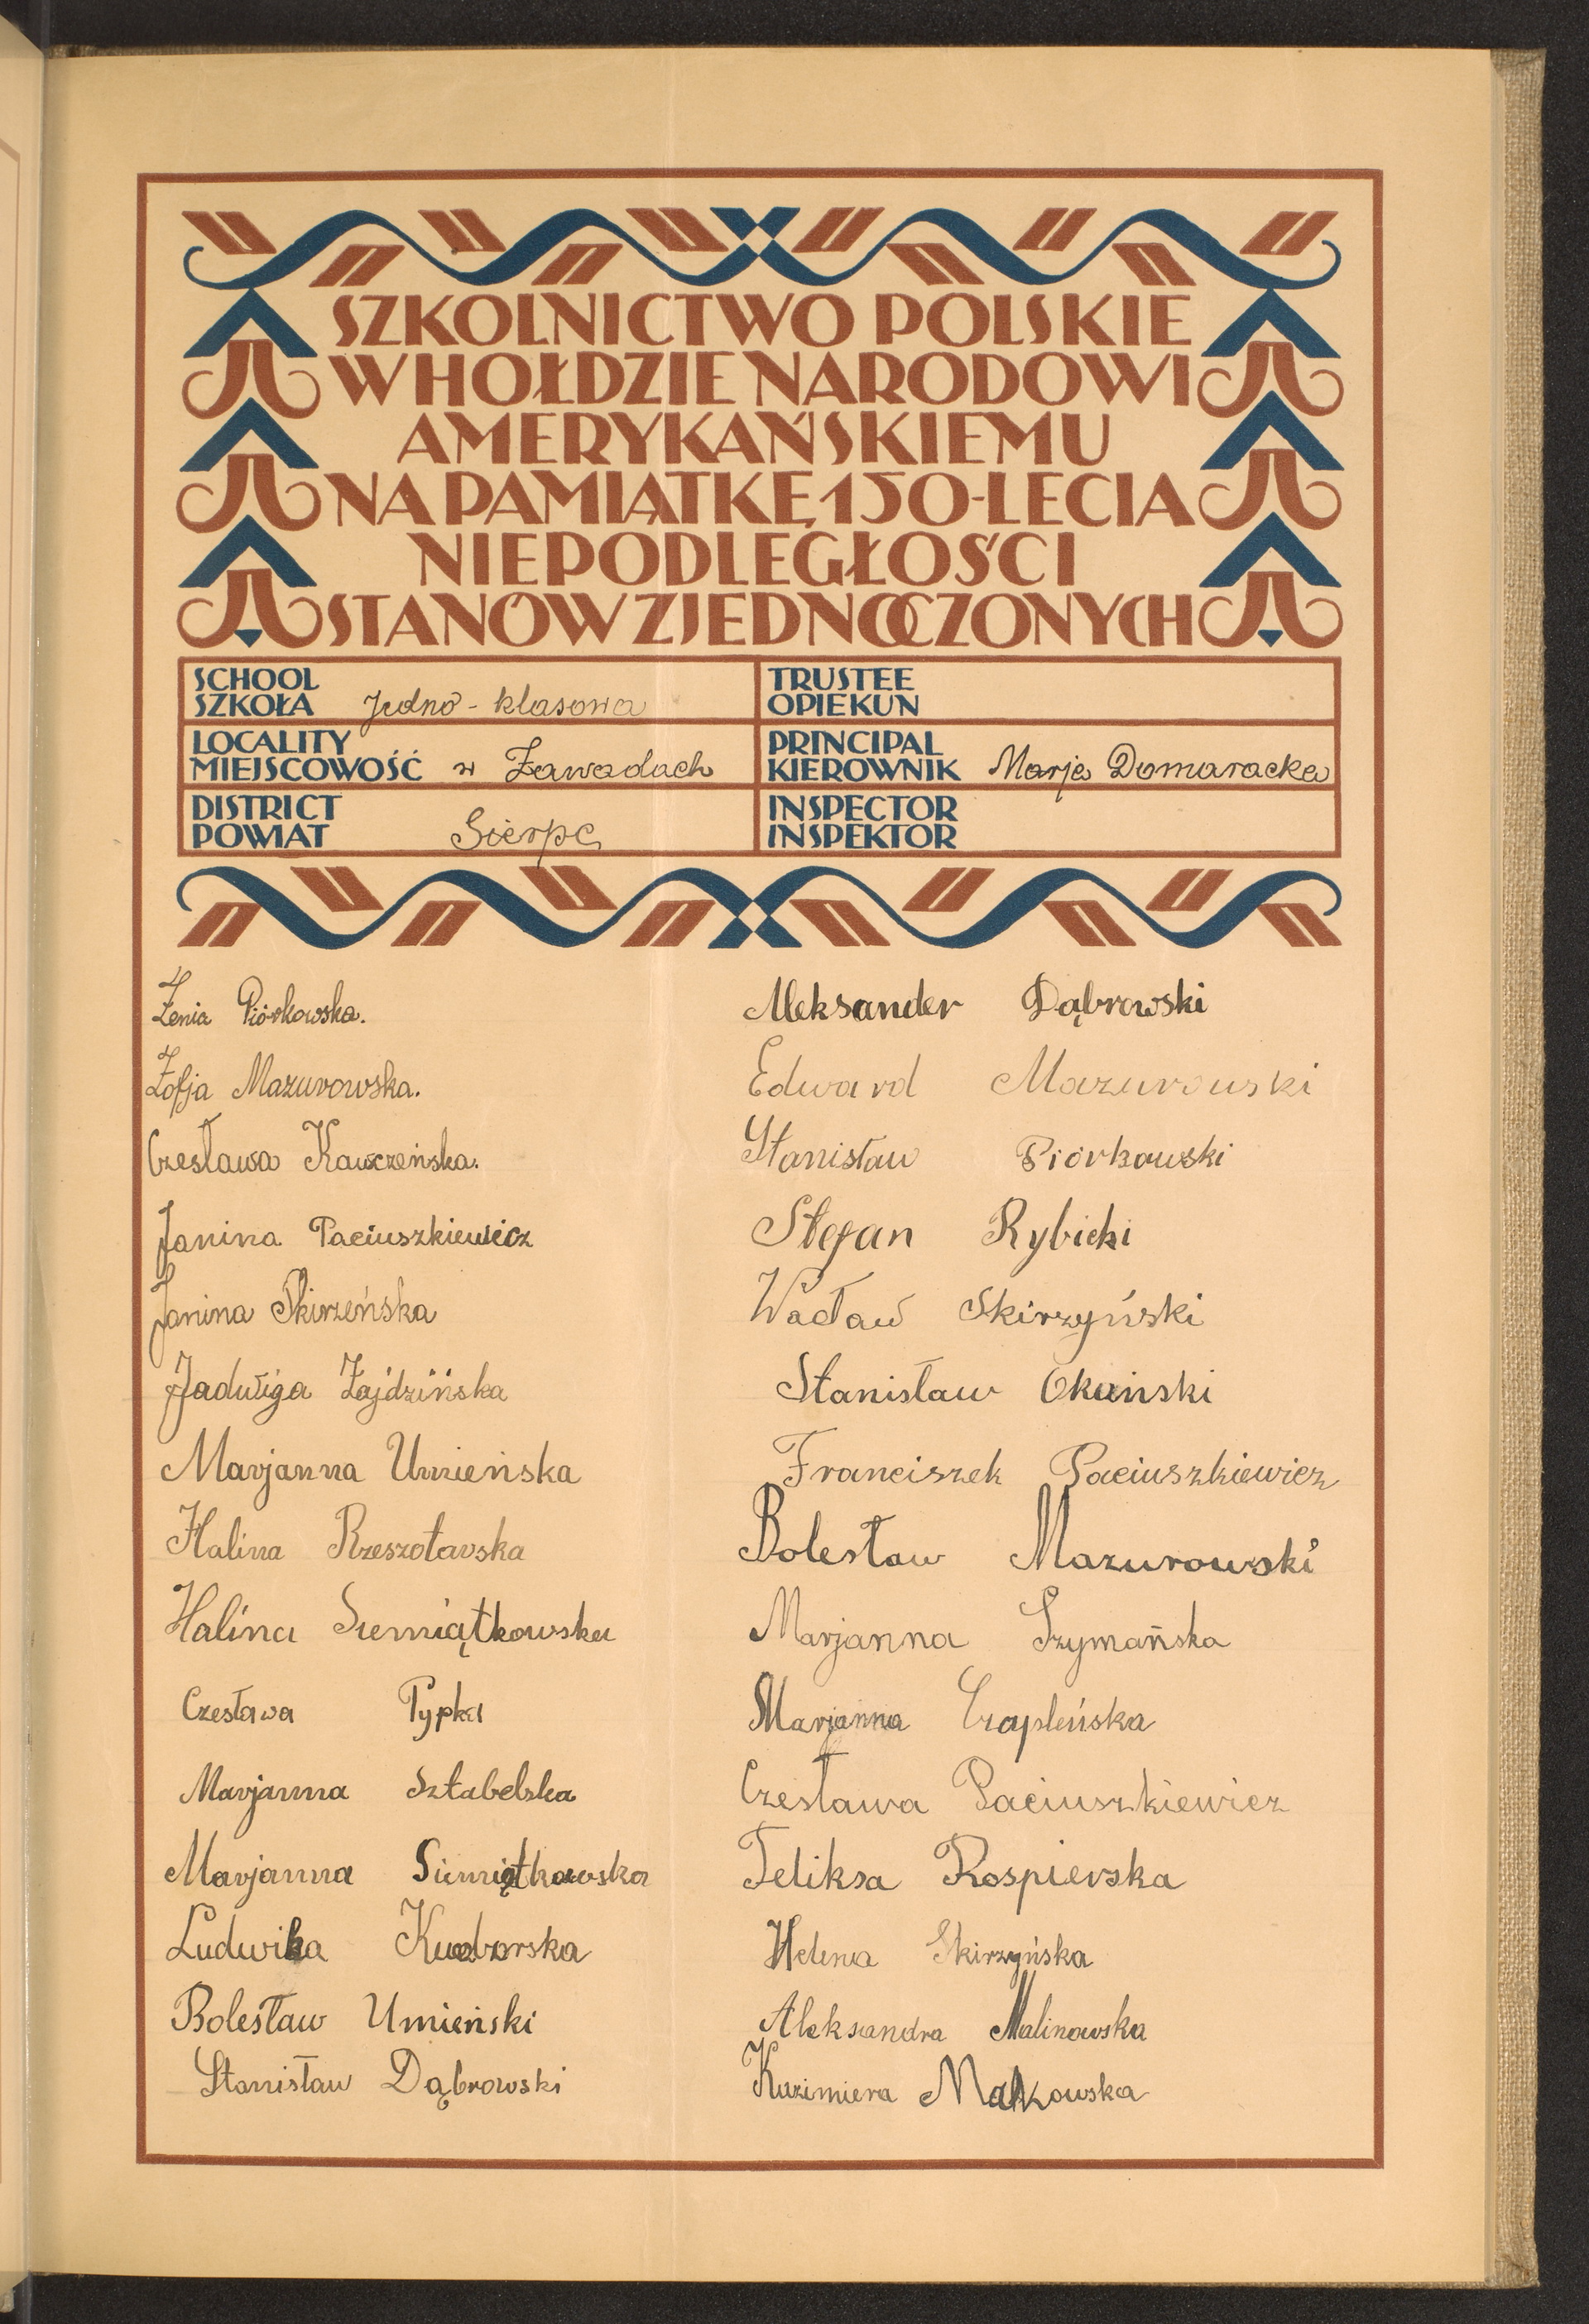 SZKOLNICTWO POLSKIE
W HOŁDZIE NARODOWI
AMERYKAŃSKIEMU
NA PAMIĄTKĘ 150-LECIA
NIEPODLEGŁOŚCI
STANÓW ZJEDNOCZONYCH
SCHOOL
SZKOŁA Jedno-klasowa
LOCALITY
MIEJSCOWOŚĆ w Zawadach
DISTRICT
POWIAT Sierpc
TRUSTEE
OPIEKUN
PRINCIPAL
KIEROWNIK Marja Domaracka
INSPECTOR
INSPEKTOR
Żenia Piórkowska.
Zofja Mazurowska.
Czesława Kawczeńska.
Janina Paciuszkiewicz
Janina Skirzeńska
Jadwiga Żajdzińska
Marjanna Umieńska
Halina Rzeszotarska
Halina Siemiątkowska
Czesława Pypka
Marjanna Sztabelska
Marjanna Siemiątkowska
Ludwika
Bolesław Umieński
Stanisław Dąbrowski
Aleksander Dąbrowski
Edward Mazurowski
Stanisław Piórkowski
Stefan Rybicki
Wacław Skirzyński
Stanisław Okuński
Franciszek Paciuszkiewicz
Bolesław Mazurowski
Marjanna Szymańska
Marjanna Czapleńska
Czesława Paciuszkiewicz
Feliksa Rospierska
Helena Skirzyńska
Aleksandra Malinowska
Kazimiera Makowska